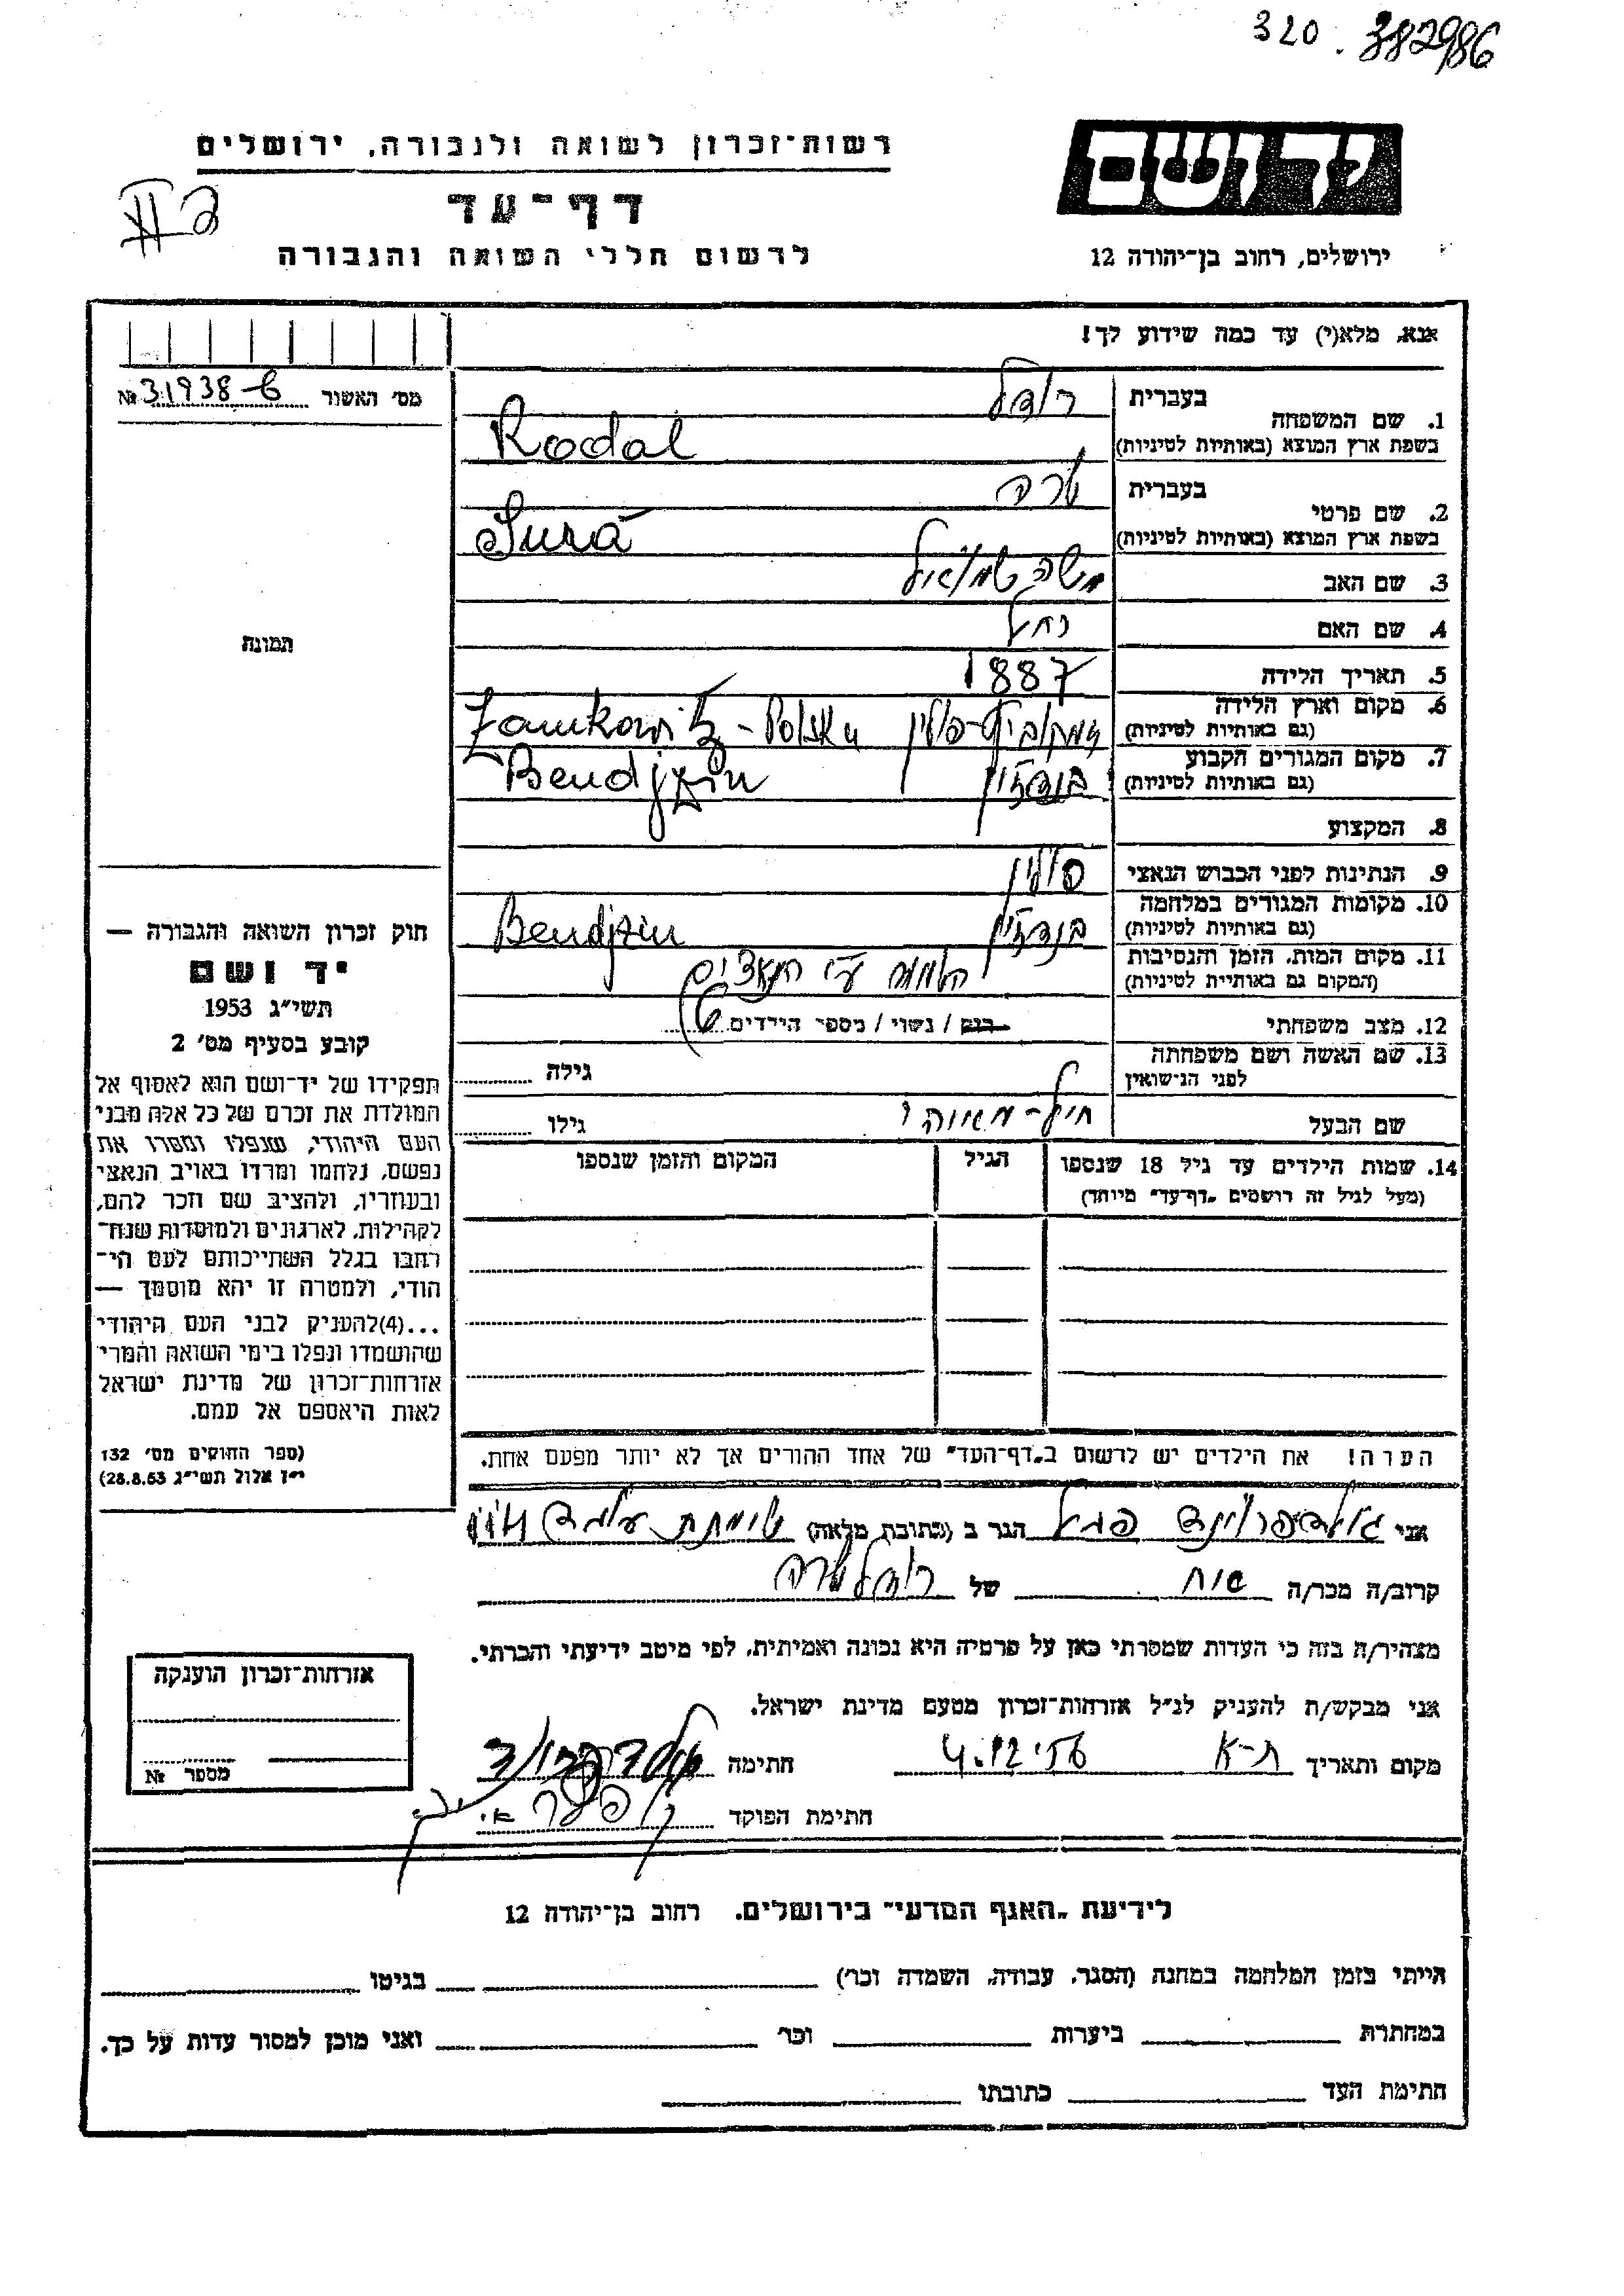 320. 382986
רשות־זכרון לשואה ולגבורה, ירושלים
יד ושם
דף־עד
לרשום חללי השואה והגבורה
ירושלים, רחוב בן־יהודה 12
אנא, מלא(י) עד כמה שידוע לך!
מס׳ האשור № 31938-6
בעברית רודל
1. שם המשפחה
בשפת ארץ המוצא (באותיות לטיניות) Rodal
בעברית שרה
2. שם פרטי
בשפת ארץ המוצא (באותיות לטיניות) Sura
3. שם האב משה שמואל
4. שם האם רחל
5. תאריך הלידה 1887
6. מקום וארץ הלידה
(גם באותיות לטיניות) פולין - Polska
7. מקום המגורים הקבוע
(גם באותיות לטיניות) בנדזין Bendjzin
8. המקצוע
9. הנתינות לפני הכבוש הנאצי פולין
10. מקומות המגורים במלחמה
(גם באותיות לטיניות) בנדזין Bendjzin
11. מקום המות, הזמן והנסיבות
(המקום גם באותיית לטיניות) ע״י הנאצים
12. מצב משפחתי רווק / נשוי / מספר הילדים 6
13. שם האשה ושם משפחתה
לפני הנישואין גילה
שם הבעל גילו
14. שמות הילדים עד גיל 18 שנספו הגיל המקום והזמן שנספו
(מעל לגיל זה רושמים „דף־עד״ מיוחד)
הערה! את הילדים יש לרשום ב„דף־העד״ של אחד ההורים אך לא יותר מפעם אחת.
תמונה
חוק זכרון השואה והגבורה —
יד ושם
תשי״ג 1953
קובע בסעיף מס׳ 2
תפקידו של יד־ושם הוא לאסוף אל
המולדת את זכרם של כל אלה מבני
העם היהודי, שנפלו ומסרו את
נפשם, נלחמו ומרדו באויב הנאצי
ובעוזריו, ולהציב שם וזכר להם,
לקהילות, לארגונים ולמוסדות שנח־
רבו בגלל השתייכותם לעם הי־
הודי, ולמטרה זו יהא מוסמך —
...(4)להעניק לבני העם היהודי
שהושמדו ונפלו בימי השואה והמרי
אזרחות־זכרון של מדינת ישראל
לאות היאספם אל עמם.
(ספר החוקים מס׳ 132
י״ז אלול תשי״ג 28.8.53)
אני הגר ב (כתובת מלאה)
קרוב/ה מכר/ה של רודל שרה
מצהיר/ה בזה כי העדות שמסרתי כאן על פרטיה היא נכונה ואמיתית, לפי מיטב ידיעתי והכרתי.
אני מבקש/ת להעניק לנ״ל אזרחות־זכרון מטעם מדינת ישראל.
מקום ותאריך ת-א 4.12.56 חתימה
חתימת הפוקד
אזרחות־זכרון הוענקה
מספר №
לידיעת „האגף המדעי״ בירושלים. רחוב בן־יהודה 12
הייתי בזמן המלחמה במחנה (הסגר, עבודה, השמדה וכו׳) בגיטו
במחתרת ביערות וכו׳ ואני מוכן למסור עדות על כך.
חתימת העד כתובתו